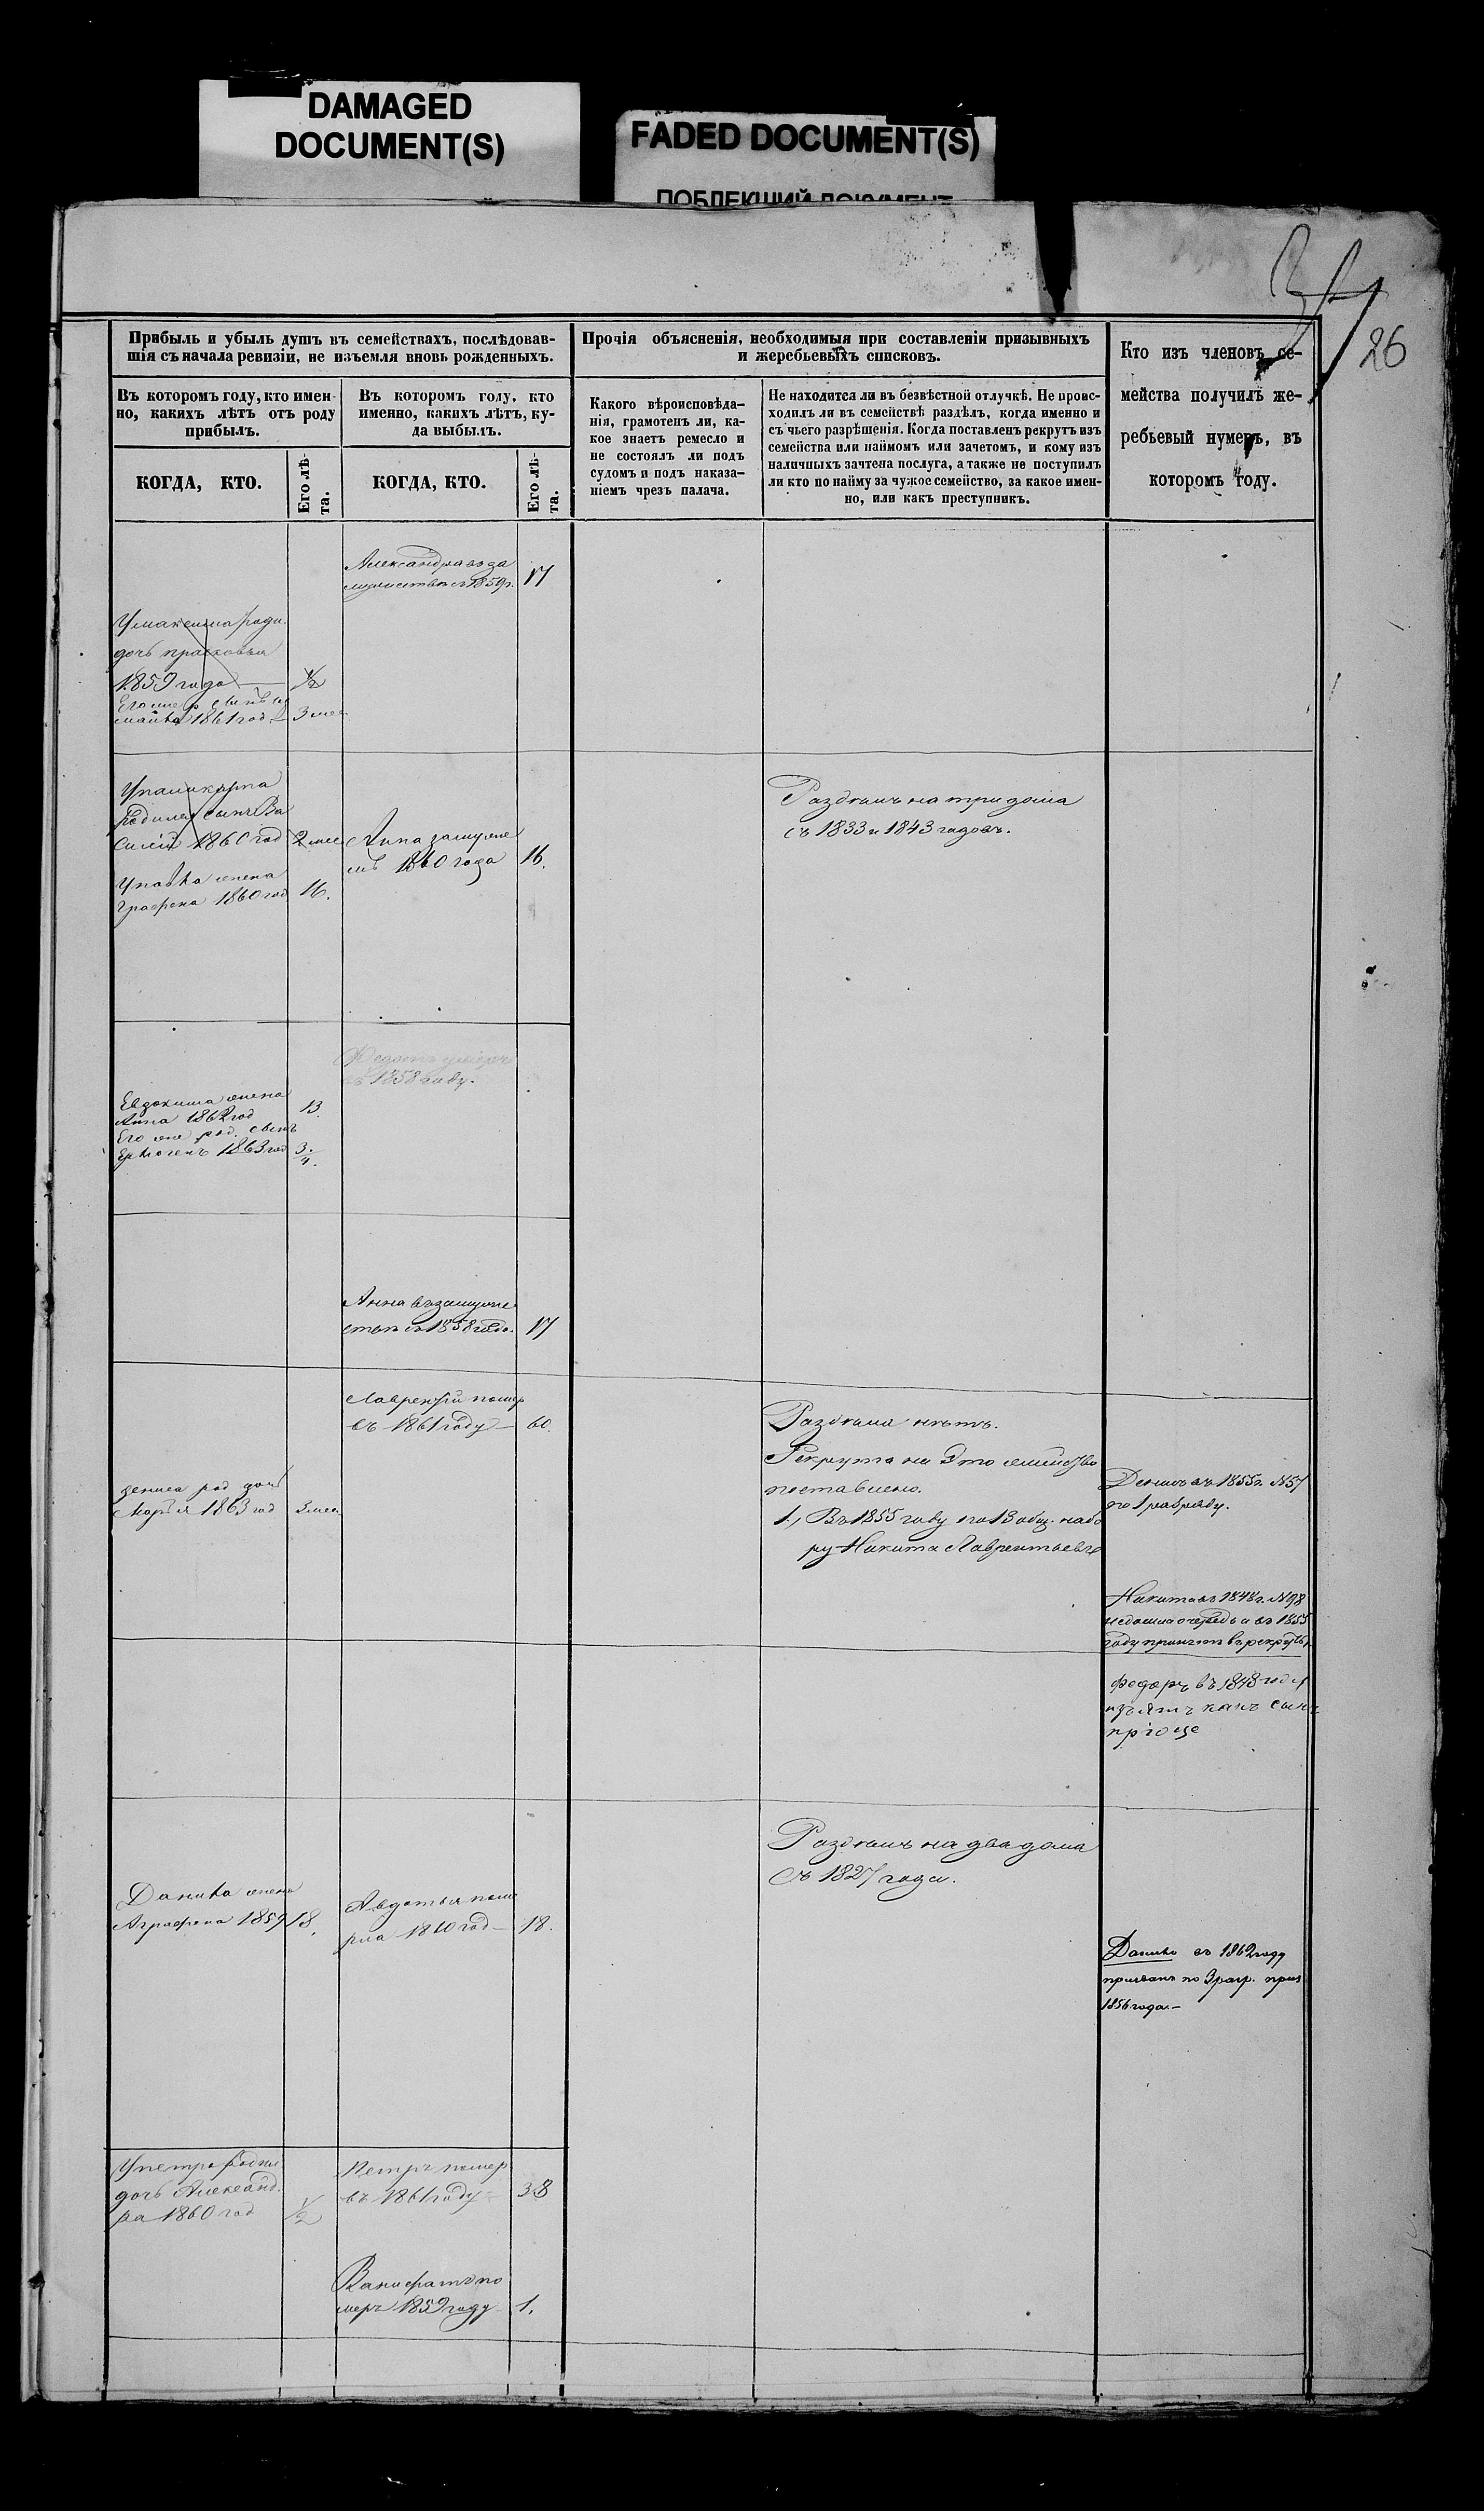 DAMAGED
DOCUMENT(S)
FADED DOCUMENT(S)
ПОБЛЕКШИЙ ДОКУМЕНТ
26
Прибыль и убыль душъ въ семействахъ, послѣдовав-
шія съ начала ревизіи, не изъемля вновь рожденныхъ.
Въ которомъ году, кто имен-
но, какихъ лѣтъ отъ роду
прибылъ.
КОГДА, КТО.
Его лѣ-
та.
Въ которомъ году, кто
именно, какихъ лѣтъ, ку-
да выбылъ.
КОГДА, КТО.
Его лѣ-
та.
Прочія объясненія, необходимыя при составленіи призывныхъ
и жеребьевыхъ списковъ.
Какого вѣроисповѣда-
нія, грамотенъ ли, ка-
кое знаетъ ремесло и
не состоялъ ли подъ
судомъ и подъ наказа-
ніемъ чрезъ палача.
Не находится ли въ безвѣстной отлучкѣ. Не проис-
ходилъ ли въ семействѣ раздѣлъ, когда именно и
съ чьего разрѣшенія. Когда поставленъ рекрутъ изъ
семейства или наймомъ или зачетомъ, и кому изъ
наличныхъ зачтена послуга, а также не поступилъ
ли кто по найму за чужое семейство, за какое имен-
но, или какъ преступникъ.
Кто изъ членовъ се-
мейства получилъ же-
ребьевый нумеръ, въ
которомъ году.
Александра въ за
мужествѣ съ 1859 г. 17
У максима роди.
дочь прасковья
1859 года — 1/2
1861 год. 3 мес
родился сынъ Ва
силій 1860 год 2 мес
Упавла жена
Графена 1860 год 16.
Анна замуже
мъ 1860 года 16.
Раздѣлъ на три дома
съ 1833 и 1843 годовъ.
Федотъ умеръ
въ 1858 году.
Евдокима жена
Анна 1862 год 13
Его же род. сынъ
1863 год 3/4.
Анна въ замуже
ствѣ съ 1858 года. 17
Лаврентій помер
въ 1861 году — 60.
дениса род дочь
Марья 1863 год 3 мес
Раздѣла нѣтъ.
Рекрута на Это семейство
поставлено.
1, Въ 1855 году по 13 общ. набо
ру Никита Лаврентьевъ
Денисъ въ 1855 г. №57
по 1 разряду.
Никита въ 1848 г. №98
недошла очередь а въ 1855
году принятъ въ рекруты.
Федоръ въ 1848 году
изъятъ какъ сынъ
при оце
Раздѣлъ на два дома
Съ 1827 года.
Данила жена
Аграфена 1859 18.
Авдотья поме
рла 1860 год — 18.
Данило въ 1862 году
призванъ по 3 разр. приз
1856 года. —
Упетра родил
дочь Александ.
ра 1860 год 1/2
Петръ помер
въ 1861 году 38
Ванифатъ по
меръ 1859 году 1.